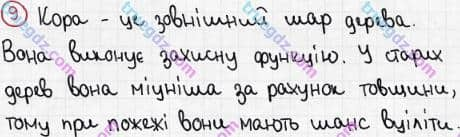 9 Кора - це зовнішний шар дерева.
Вона виконує захисну функцію. У старих
дерев вона міцніша за рахунок товщини,
тому при пожежі вони мають шанс вціліти.